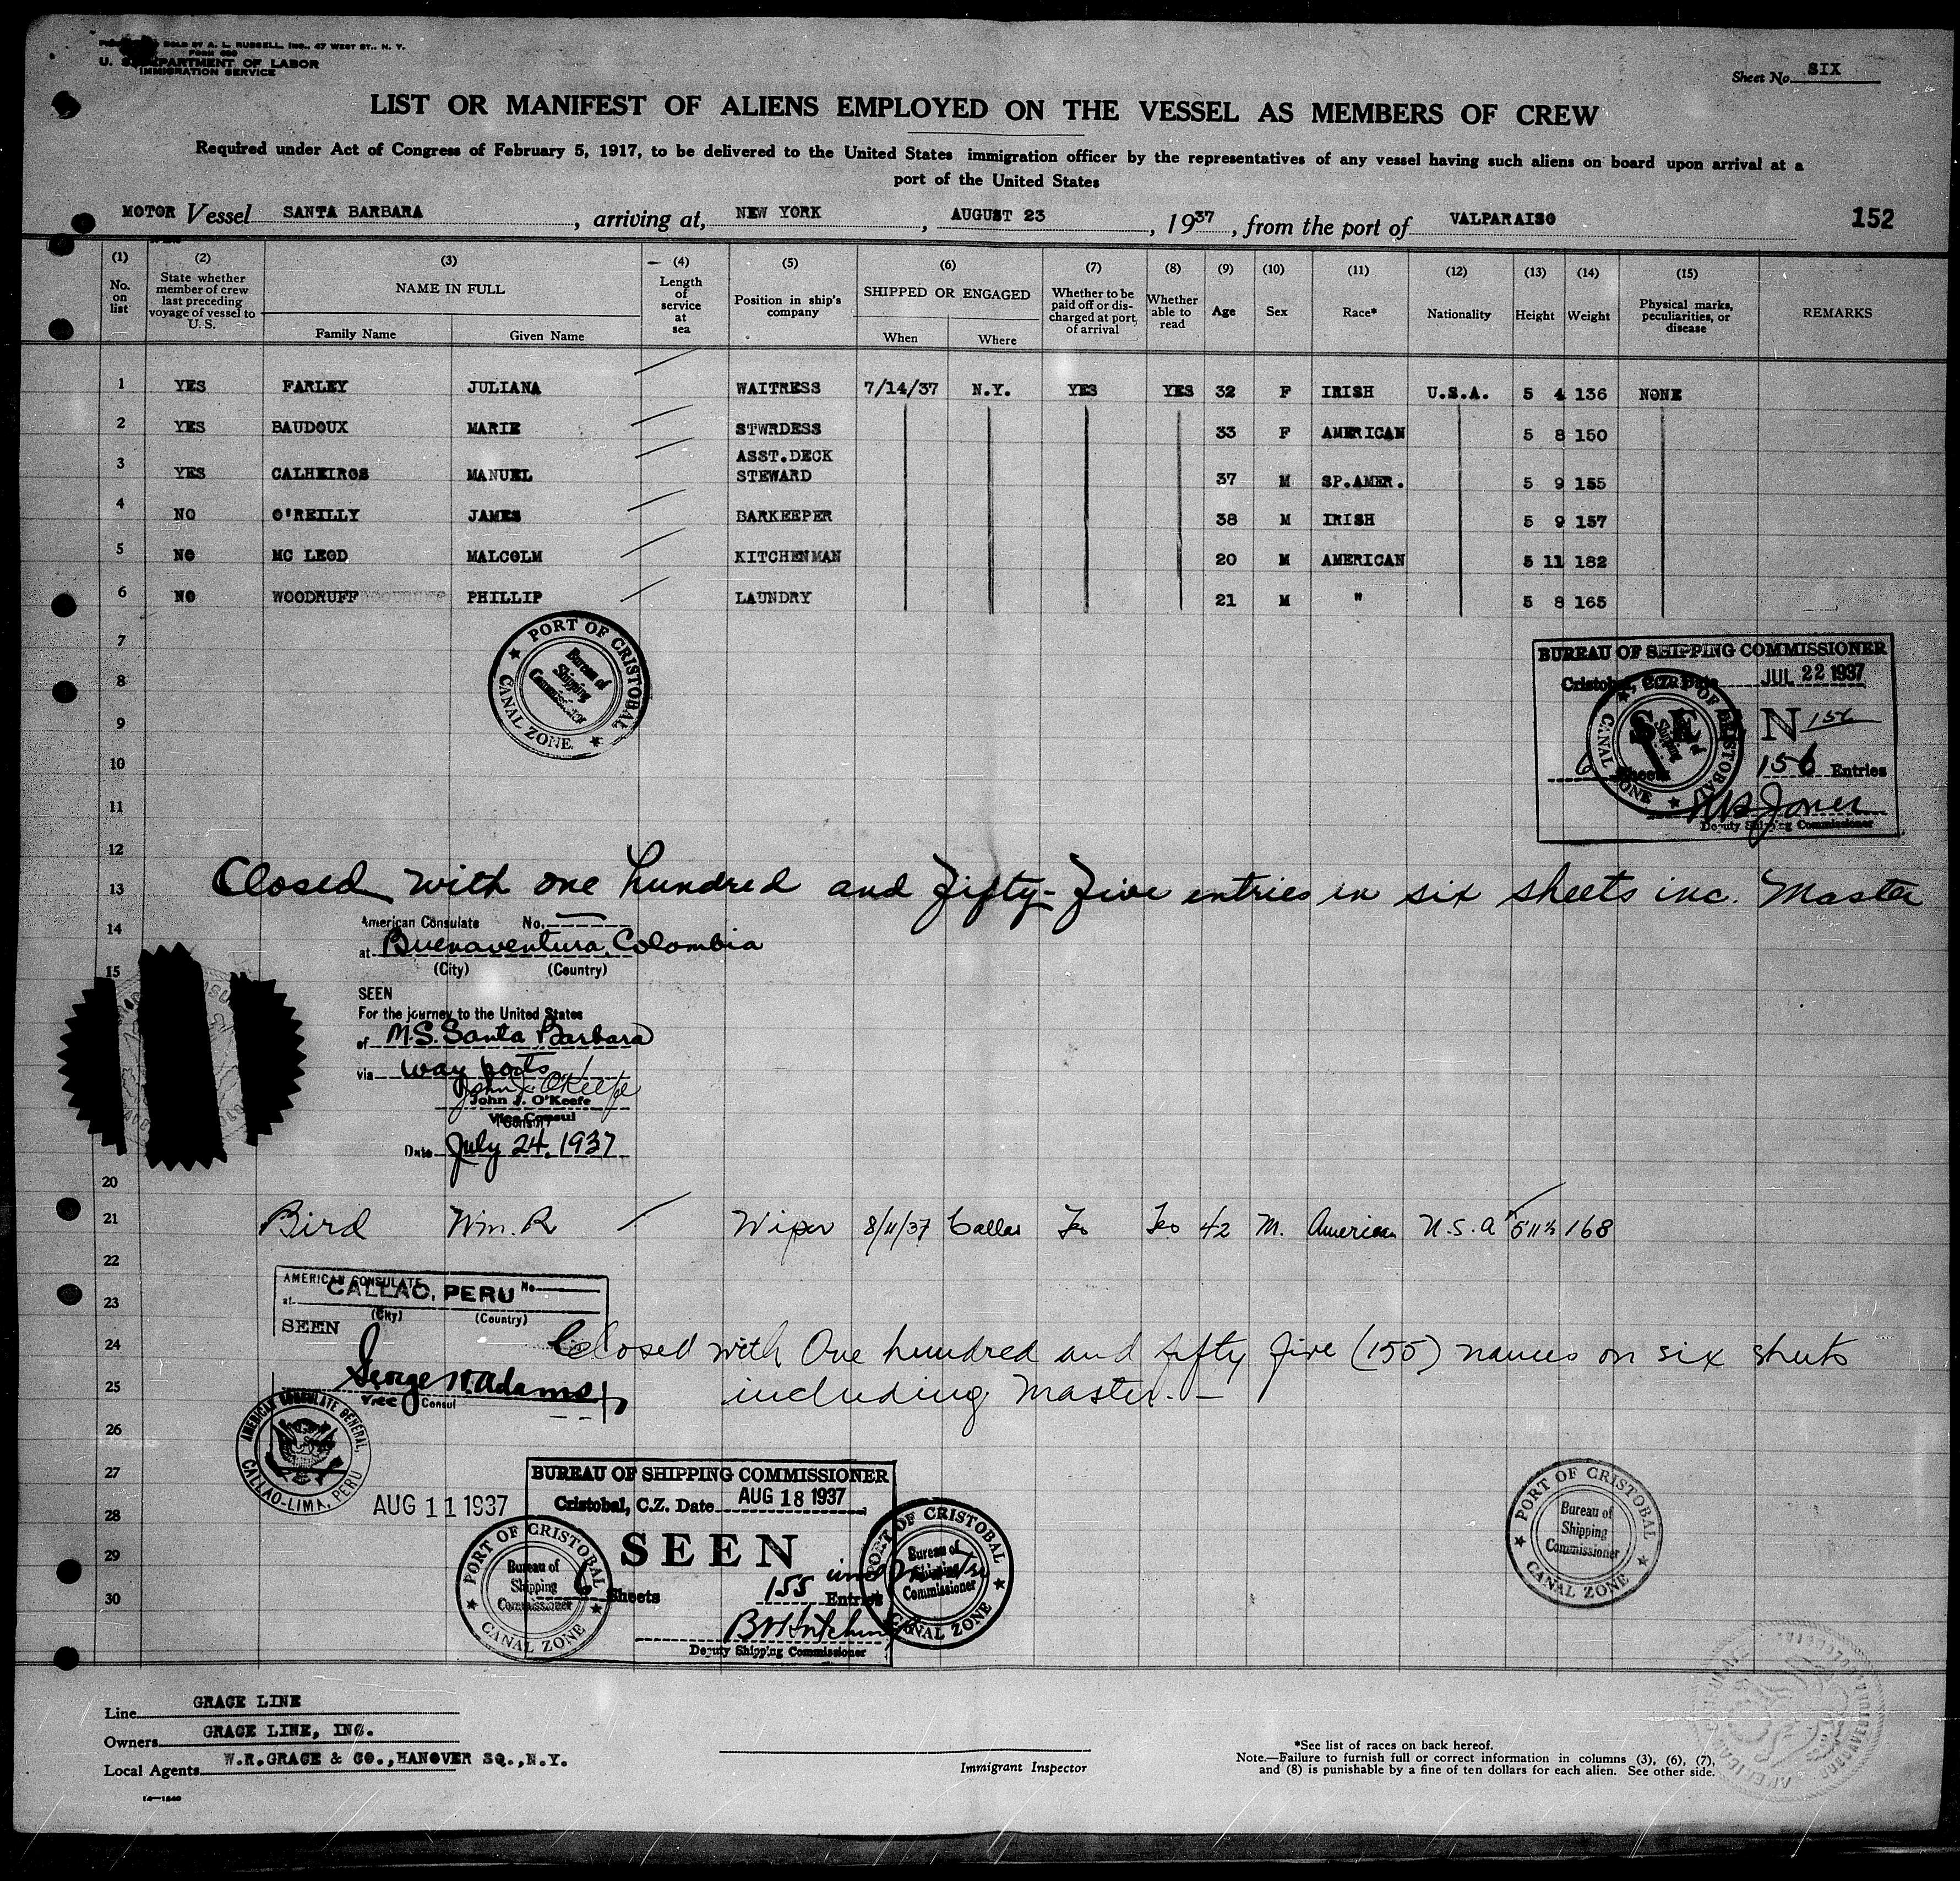 SOLD BY A. L. RUSSELL, INC., 47 WEST ST., N. Y.
FORM 680
U. S. DEPARTMENT OF LABOR
IMMIGRATION SERVICE
Sheet No. SIX
LIST OR MANIFEST OF ALIENS EMPLOYED ON THE VESSEL AS MEMBERS OF CREW
Required under Act of Congress of February 5, 1917, to be delivered to the United States immigration officer by the representatives of any vessel having such aliens on board upon arrival at a
port of the United States
MOTOR Vessel SANTA BARBARA, arriving at, NEW YORK, AUGUST 23, 1937, from the port of VALPARAISO 152
(1) No. on list
(2) State whether member of crew last preceding voyage of vessel to U. S.
(3) NAME IN FULL Family Name Given Name
(4) Length of service at sea
(5) Position in ship's company
(6) SHIPPED OR ENGAGED When Where
(7) Whether to be paid off or discharged at port of arrival
(8) Whether able to read
(9) Age
(10) Sex
(11) Race*
(12) Nationality
(13) Height
(14) Weight
(15) Physical marks, peculiarities, or disease
REMARKS
1 YES FARLEY JULIANA WAITRESS 7/14/37 N.Y. YES YES 32 F IRISH U.S.A. 5 4 136 NONE
2 YES BAUDOUX MARIE STWRDESS 33 F AMERICAN 5 8 150
3 YES CALHEIROS MANUEL ASST.DECK STEWARD 37 M SP.AMER. 5 9 155
4 NO O'REILLY JAMES BARKEEPER 38 M IRISH 5 9 157
5 NO MC LEOD MALCOLM KITCHENMAN 20 M AMERICAN 5 11 182
6 NO WOODRUFF PHILLIP LAUNDRY 21 M " 5 8 165
7
PORT OF CRISTOBAL
Bureau of Shipping Commissioner
CANAL ZONE
BUREAU OF SHIPPING COMMISSIONER
Cristobal, C.Z. Date JUL 22 1937
8
9
SEEN 156
10
6 Sheets 156 Entries
11
Jones
Deputy Shipping Commissioner
12
13 Closed with one hundred and fifty-five entries in six sheets inc. Master
American Consulate No.
14
at Buenaventura, Colombia
(City) (Country)
15
SEEN
For the journey to the United States
of M.S. Santa Barbara
via way ports
John J. O'Keefe
John J. O'Keefe
Vice Consul
Date July 24, 1937
20
21 Bird Wm. R Wiper 8/11/37 Callao Yes Yes 42 M. American U.S.A 5 11½ 168
22
AMERICAN CONSULATE No.
at CALLAO, PERU
23
(City) (Country)
SEEN
24 Closed with One hundred and fifty five (155) names on six sheets
George W. Adams
25 including Master.
Vice Consul
26
AMERICAN CONSULATE GENERAL, CALLAO-LIMA, PERU
27
BUREAU OF SHIPPING COMMISSIONER
AUG 11 1937
Cristobal, C.Z. Date AUG 18 1937
28
PORT OF CRISTOBAL
Bureau of Shipping Commissioner
CANAL ZONE
29
SEEN
6 Sheets 155 Entries
30
Deputy Shipping Commissioner
PORT OF CRISTOBAL
Bureau of Shipping Commissioner
CANAL ZONE
PORT OF CRISTOBAL
Bureau of Shipping Commissioner
CANAL ZONE
Line GRACE LINE
Owners GRACE LINE, INC.
Local Agents W.R.GRACE & CO.,HANOVER SQ.,N.Y.
Immigrant Inspector
*See list of races on back hereof.
Note.—Failure to furnish full or correct information in columns (3), (6), (7),
and (8) is punishable by a fine of ten dollars for each alien. See other side.
14—1240